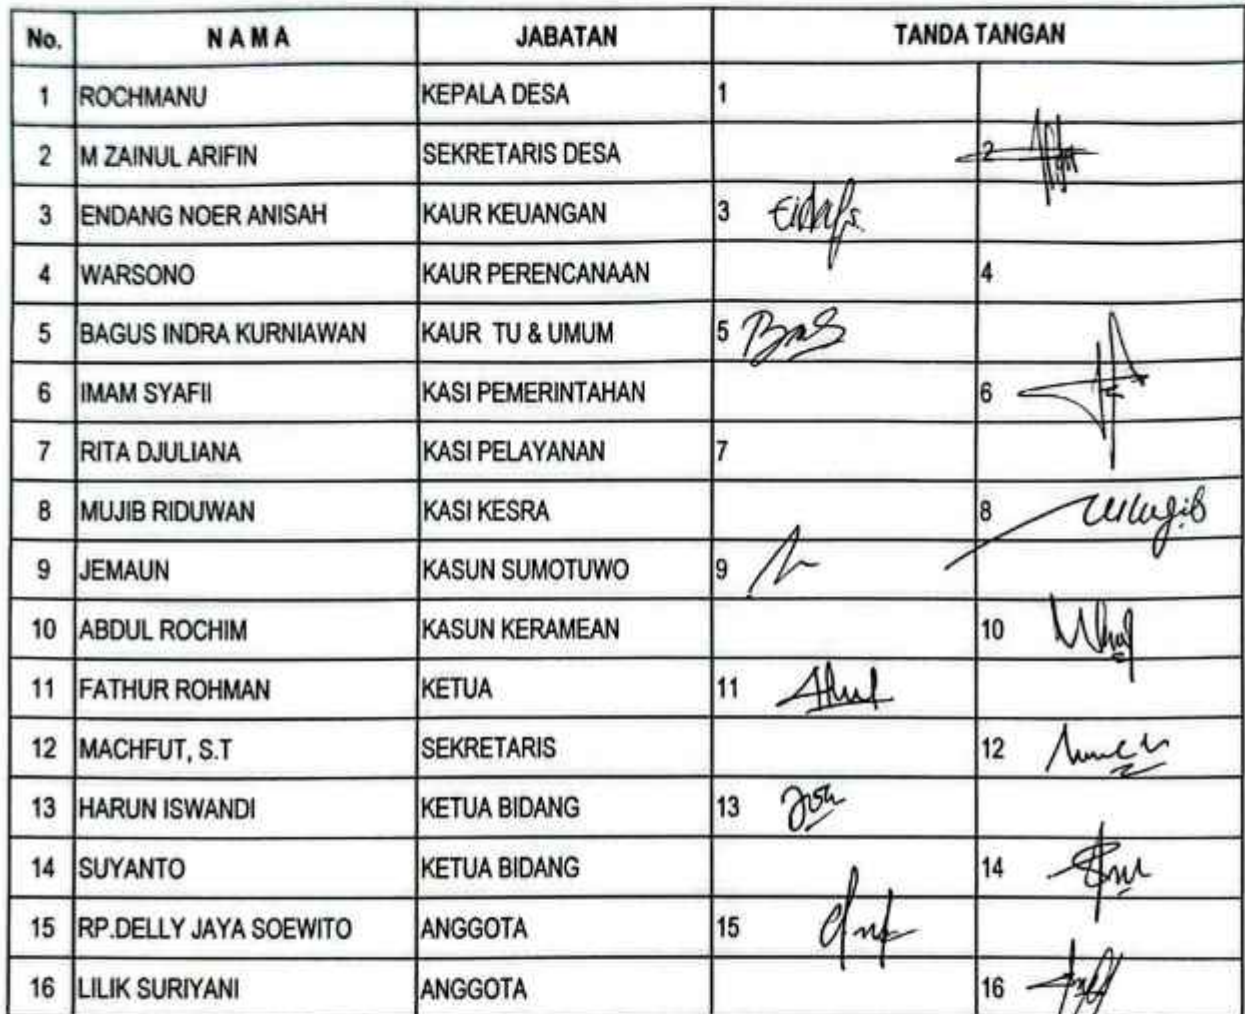 No. NAMA JABATAN TANDA TANGAN
1 ROCHMANU KEPALA DESA 1
2 M ZAINUL ARIFIN SEKRETARIS DESA 2
3 ENDANG NOER ANISAH KAUR KEUANGAN 3
4 WARSONO KAUR PERENCANAAN 4
5 BAGUS INDRA KURNIAWAN KAUR TU & UMUM 5
6 IMAM SYAFII KASI PEMERINTAHAN 6
7 RITA DJULIANA KASI PELAYANAN 7
8 MUJIB RIDUWAN KASI KESRA 8
9 JEMAUN KASUN SUMOTUWO 9
10 ABDUL ROCHIM KASUN KERAMEAN 10
11 FATHUR ROHMAN KETUA 11
12 MACHFUT, S.T SEKRETARIS 12
13 HARUN ISWANDI KETUA BIDANG 13
14 SUYANTO KETUA BIDANG 14
15 RP.DELLY JAYA SOEWITO ANGGOTA 15
16 LILIK SURIYANI ANGGOTA 16